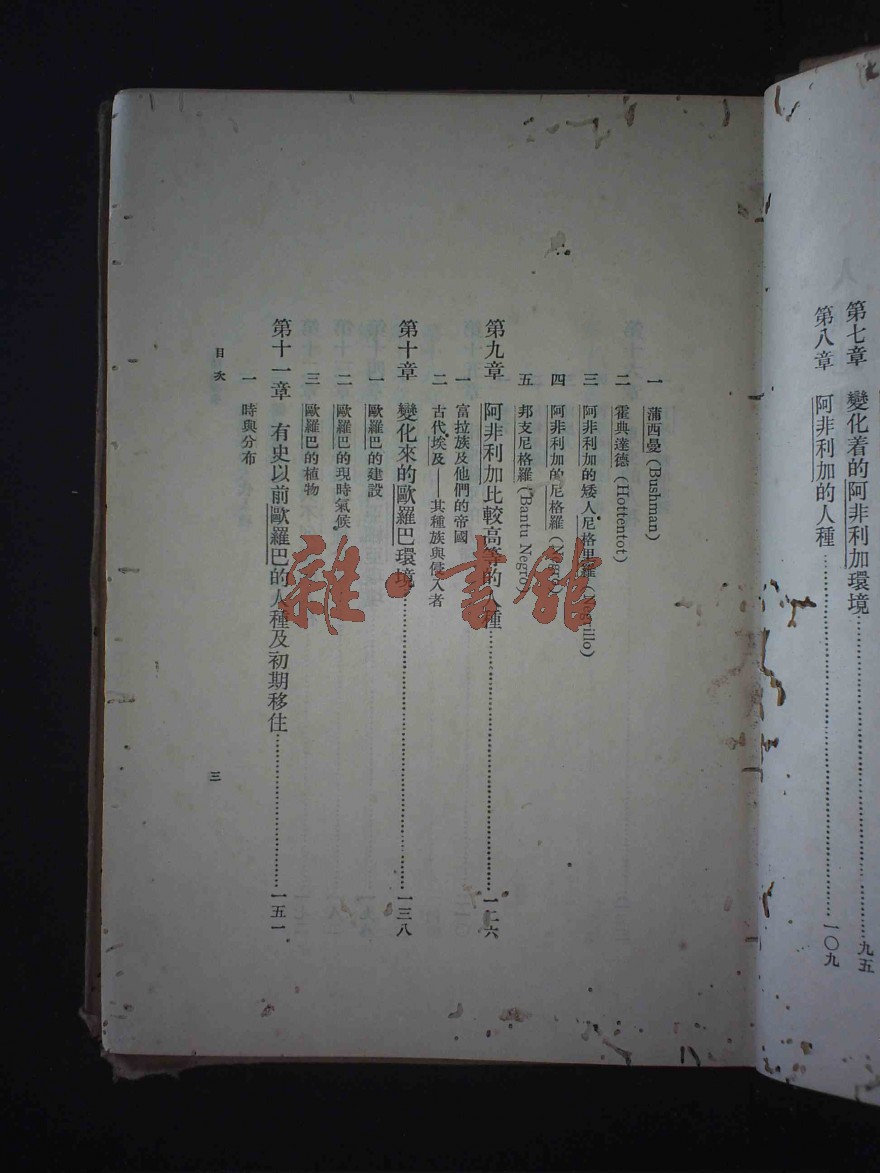 第七章 變化着的阿非利加環境……九五
第八章 阿非利加的人種……一〇九
一 蒲西曼(Bushman)
二 霍典達德(Hottentot)
三 阿非利加的矮人尼格里羅(Negrillo)
四 阿非利加的尼格羅(Negro)
五 邦支尼格羅(Bantu Negro)
第九章 阿非利加比較高等的人種……一二六
一 富拉族及他們的帝國
二 古代埃及——其種族與侵入者
第十章 變化來的歐羅巴環境……一三八
一 歐羅巴的建設
二 歐羅巴的現時氣候
三 歐羅巴的植物
第十一章 有史以前歐羅巴的人種及初期移住……一五一
一 時與分布
目次
三
雜·書館